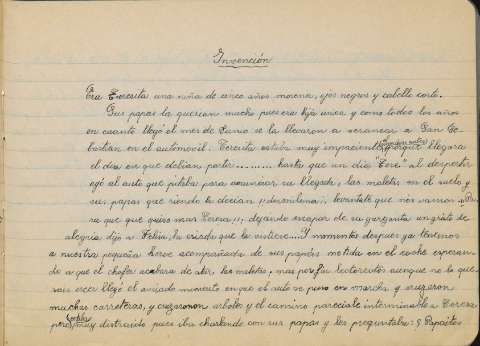 Invención
Era Teresita una niña de cinco años morena, ojos negros y cabello corto.
Sus papás la querían mucho pues era hija unica y como todos los años
en cuanto llegó el mes de Junio se la llevaron a veranear a San Se-
bastián en el automóvil. Teresita estaba muy impaciente porque llegara
el día en que debían partir.......... hasta que un día "Tere" al despertar
oyó al auto que pitaba para anunciar su llegada, las maletas en el suelo y
sus papas que riendo la decian ¡dormilona!, levántate que nos vamos a
ra que que quires mas Teresa!!, dejando escapar de su garganta un grito de
alegria dijo a Felisa, la criada que la vistiera....Y momentos despues ya tenemos
a nuestra pequeña heroe acompañada de sus papás metida en el coche esperan-
do a que el chofer acabara de atar, las maletas, mas por fin lectorcitos aunque no lo que-
rais creer llegó el ansiado momento en que el auto se puso en marcha y cruzaron
muchas carreteras, y cruzaron arboles y el camino pareciale interminable a Teresa
pero muy distraido pues iba charlando con sus papas y les preguntaba: ¿Papaitos